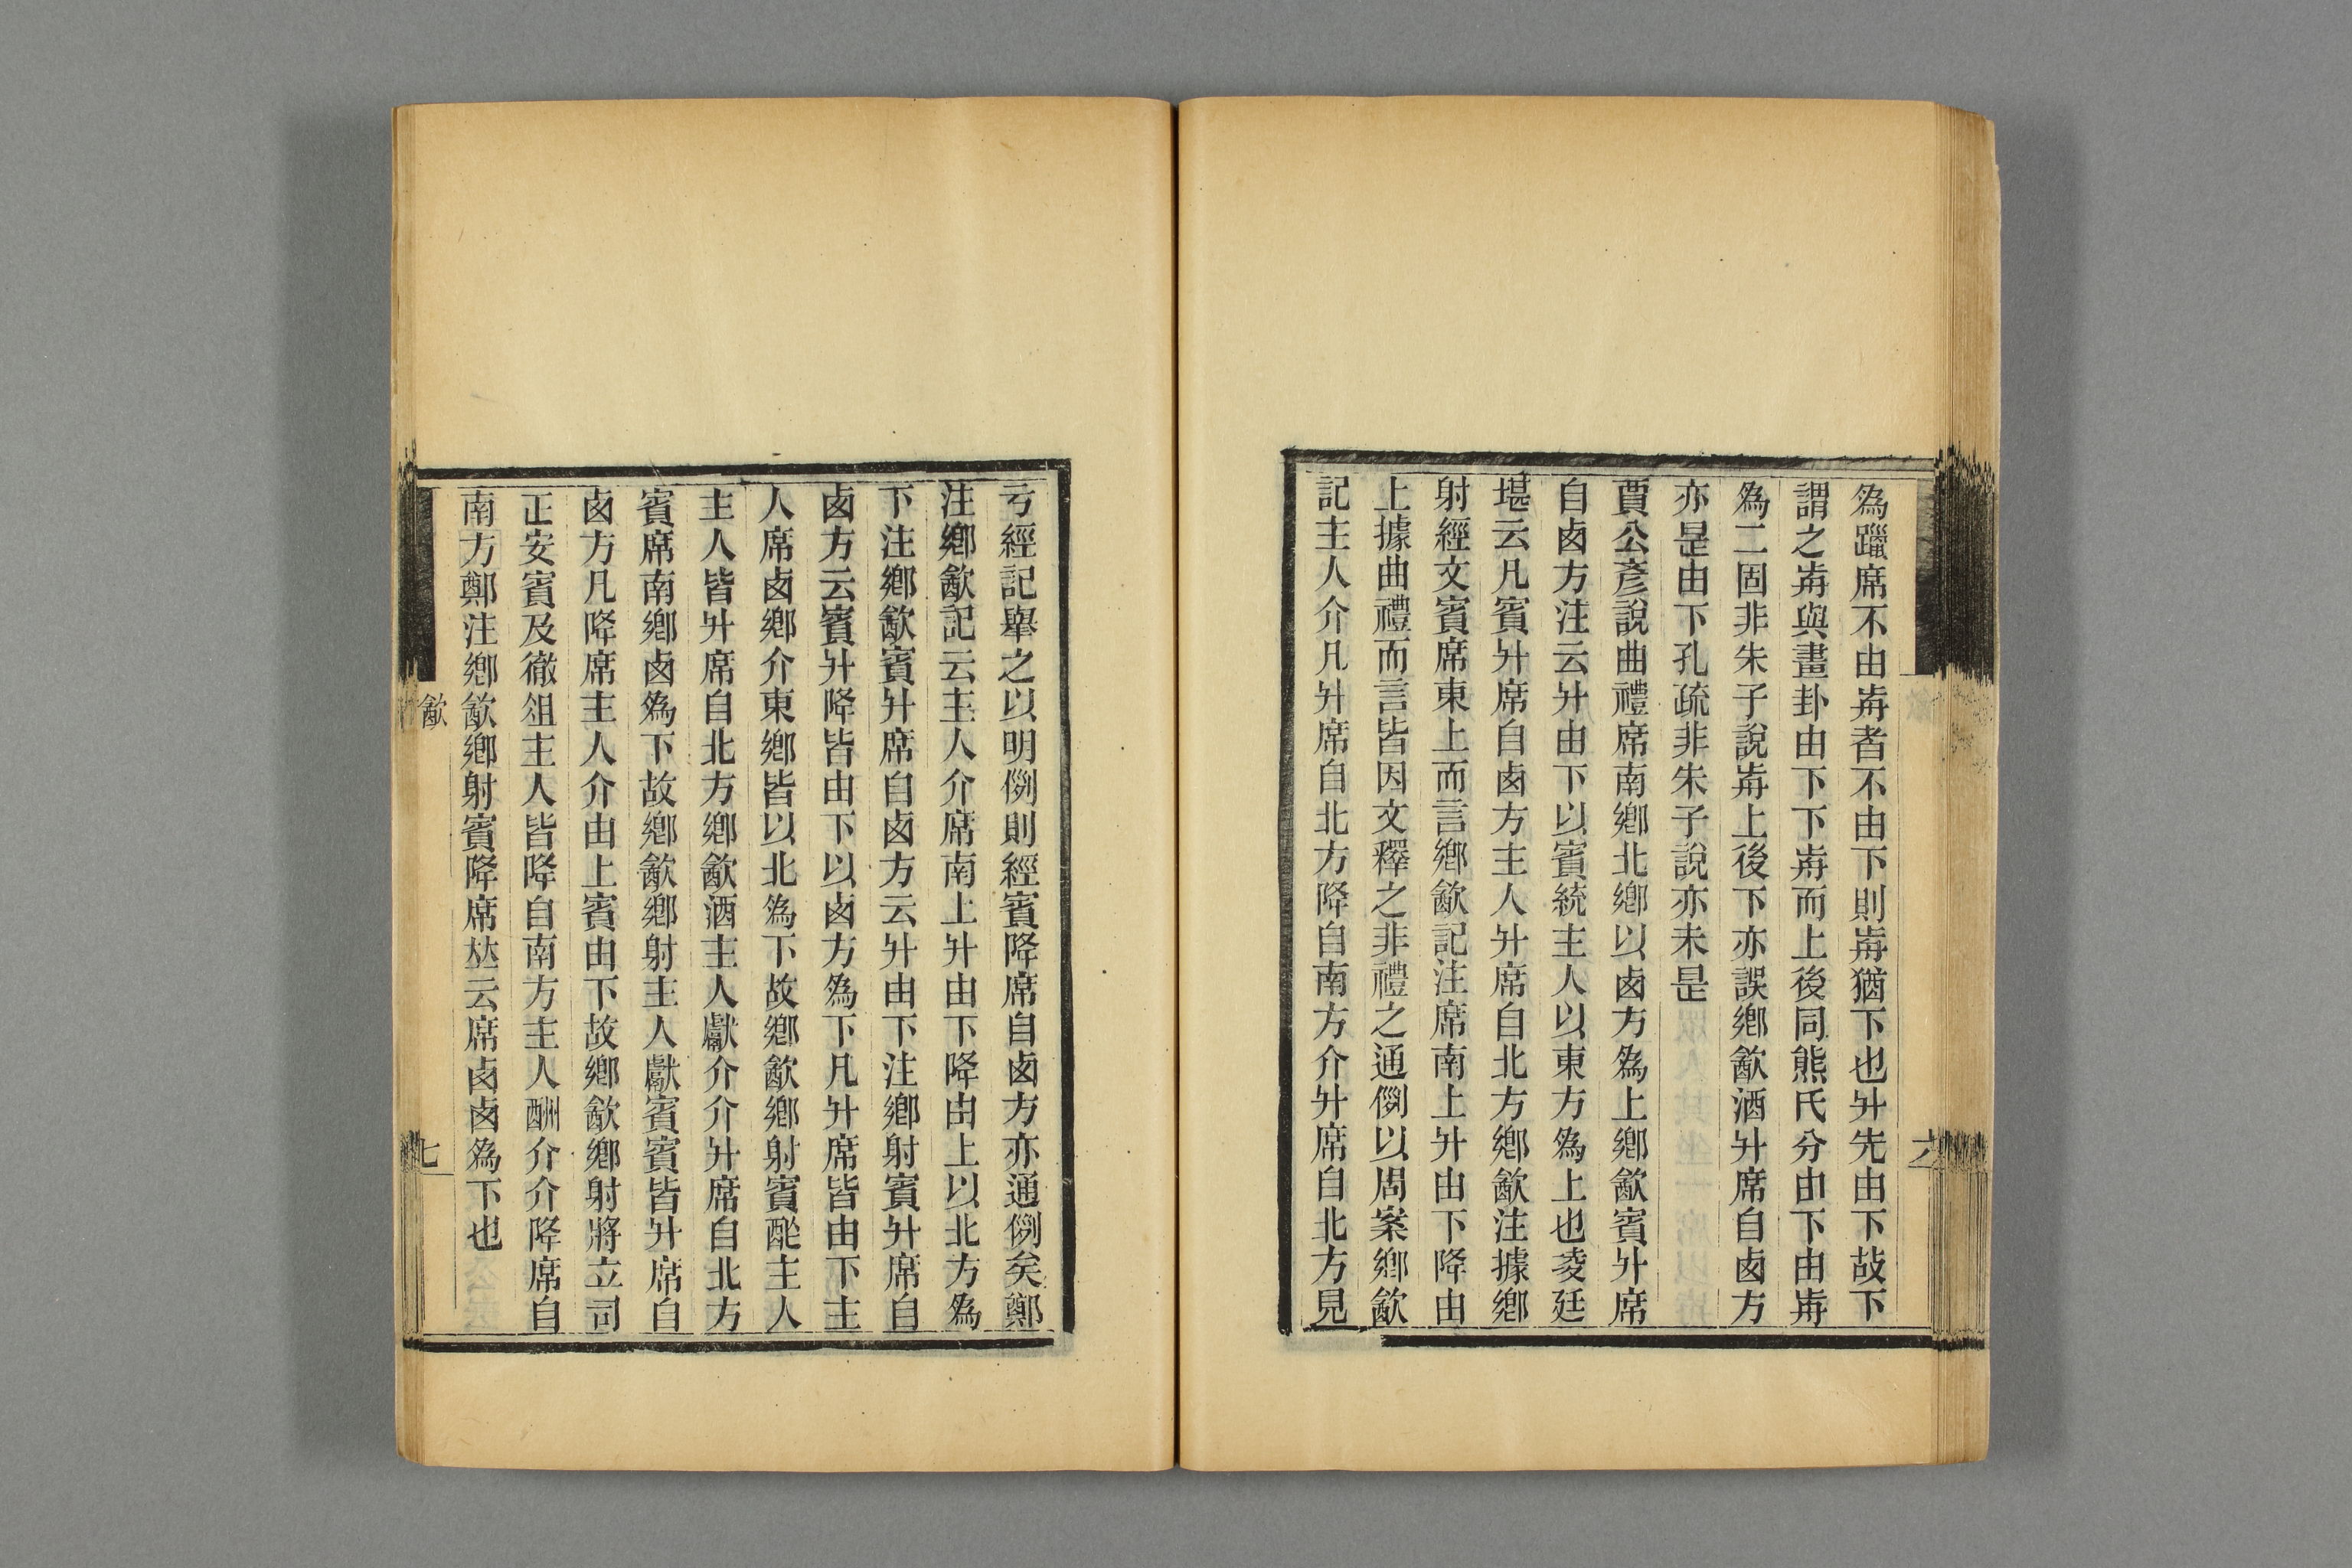 為躐席不由歬者不由下則歬猶下也升先由下故下
謂之歬與畫卦由下下歬而上後同熊氏分由下由歬
為二固非朱子說歬上後下亦誤鄉㱃酒升席自卤方
亦是由下孔疏非朱子說亦未是
賈公彥說曲禮席南鄉北鄉以卤方為上鄉㱃賓升席
自卤方注云升由下以賓統主人以東方為上也凌廷
堪云凡賓升席自卤方主人升席自北方鄉㱃注據鄉
射經文賓席東上而言鄉㱃記注席南上升由下降由
上據曲禮而言皆因文釋之非禮之通例以周案鄉㱃
記主人介凡升席自北方降自南方介升席自北方見
六
亏經記舉之以明例則經賓降席自卤方亦通例矣鄭
注鄉㱃記云主人介席南上升由下降由上以北方為
下注鄉㱃賓升席自卤方云升由下注鄉射賓升席自
卤方云賓升降皆由下以卤方為下凡升席皆由下主
人席卤鄉介東鄉皆以北為下故鄉㱃鄉射賓酢主人
主人皆升席自北方鄉㱃酒主人獻介介升席自北方
賓席南鄉卤為下故鄉㱃鄉射主人獻賓賓皆升席自
卤方凡降席主人介由上賓由下故鄉㱃鄉射將立司
正安賓及徹俎主人皆降自南方主人酬介介降席自
南方鄭注鄉㱃鄉射賓降席竝云席卤卤為下也
㱃
七